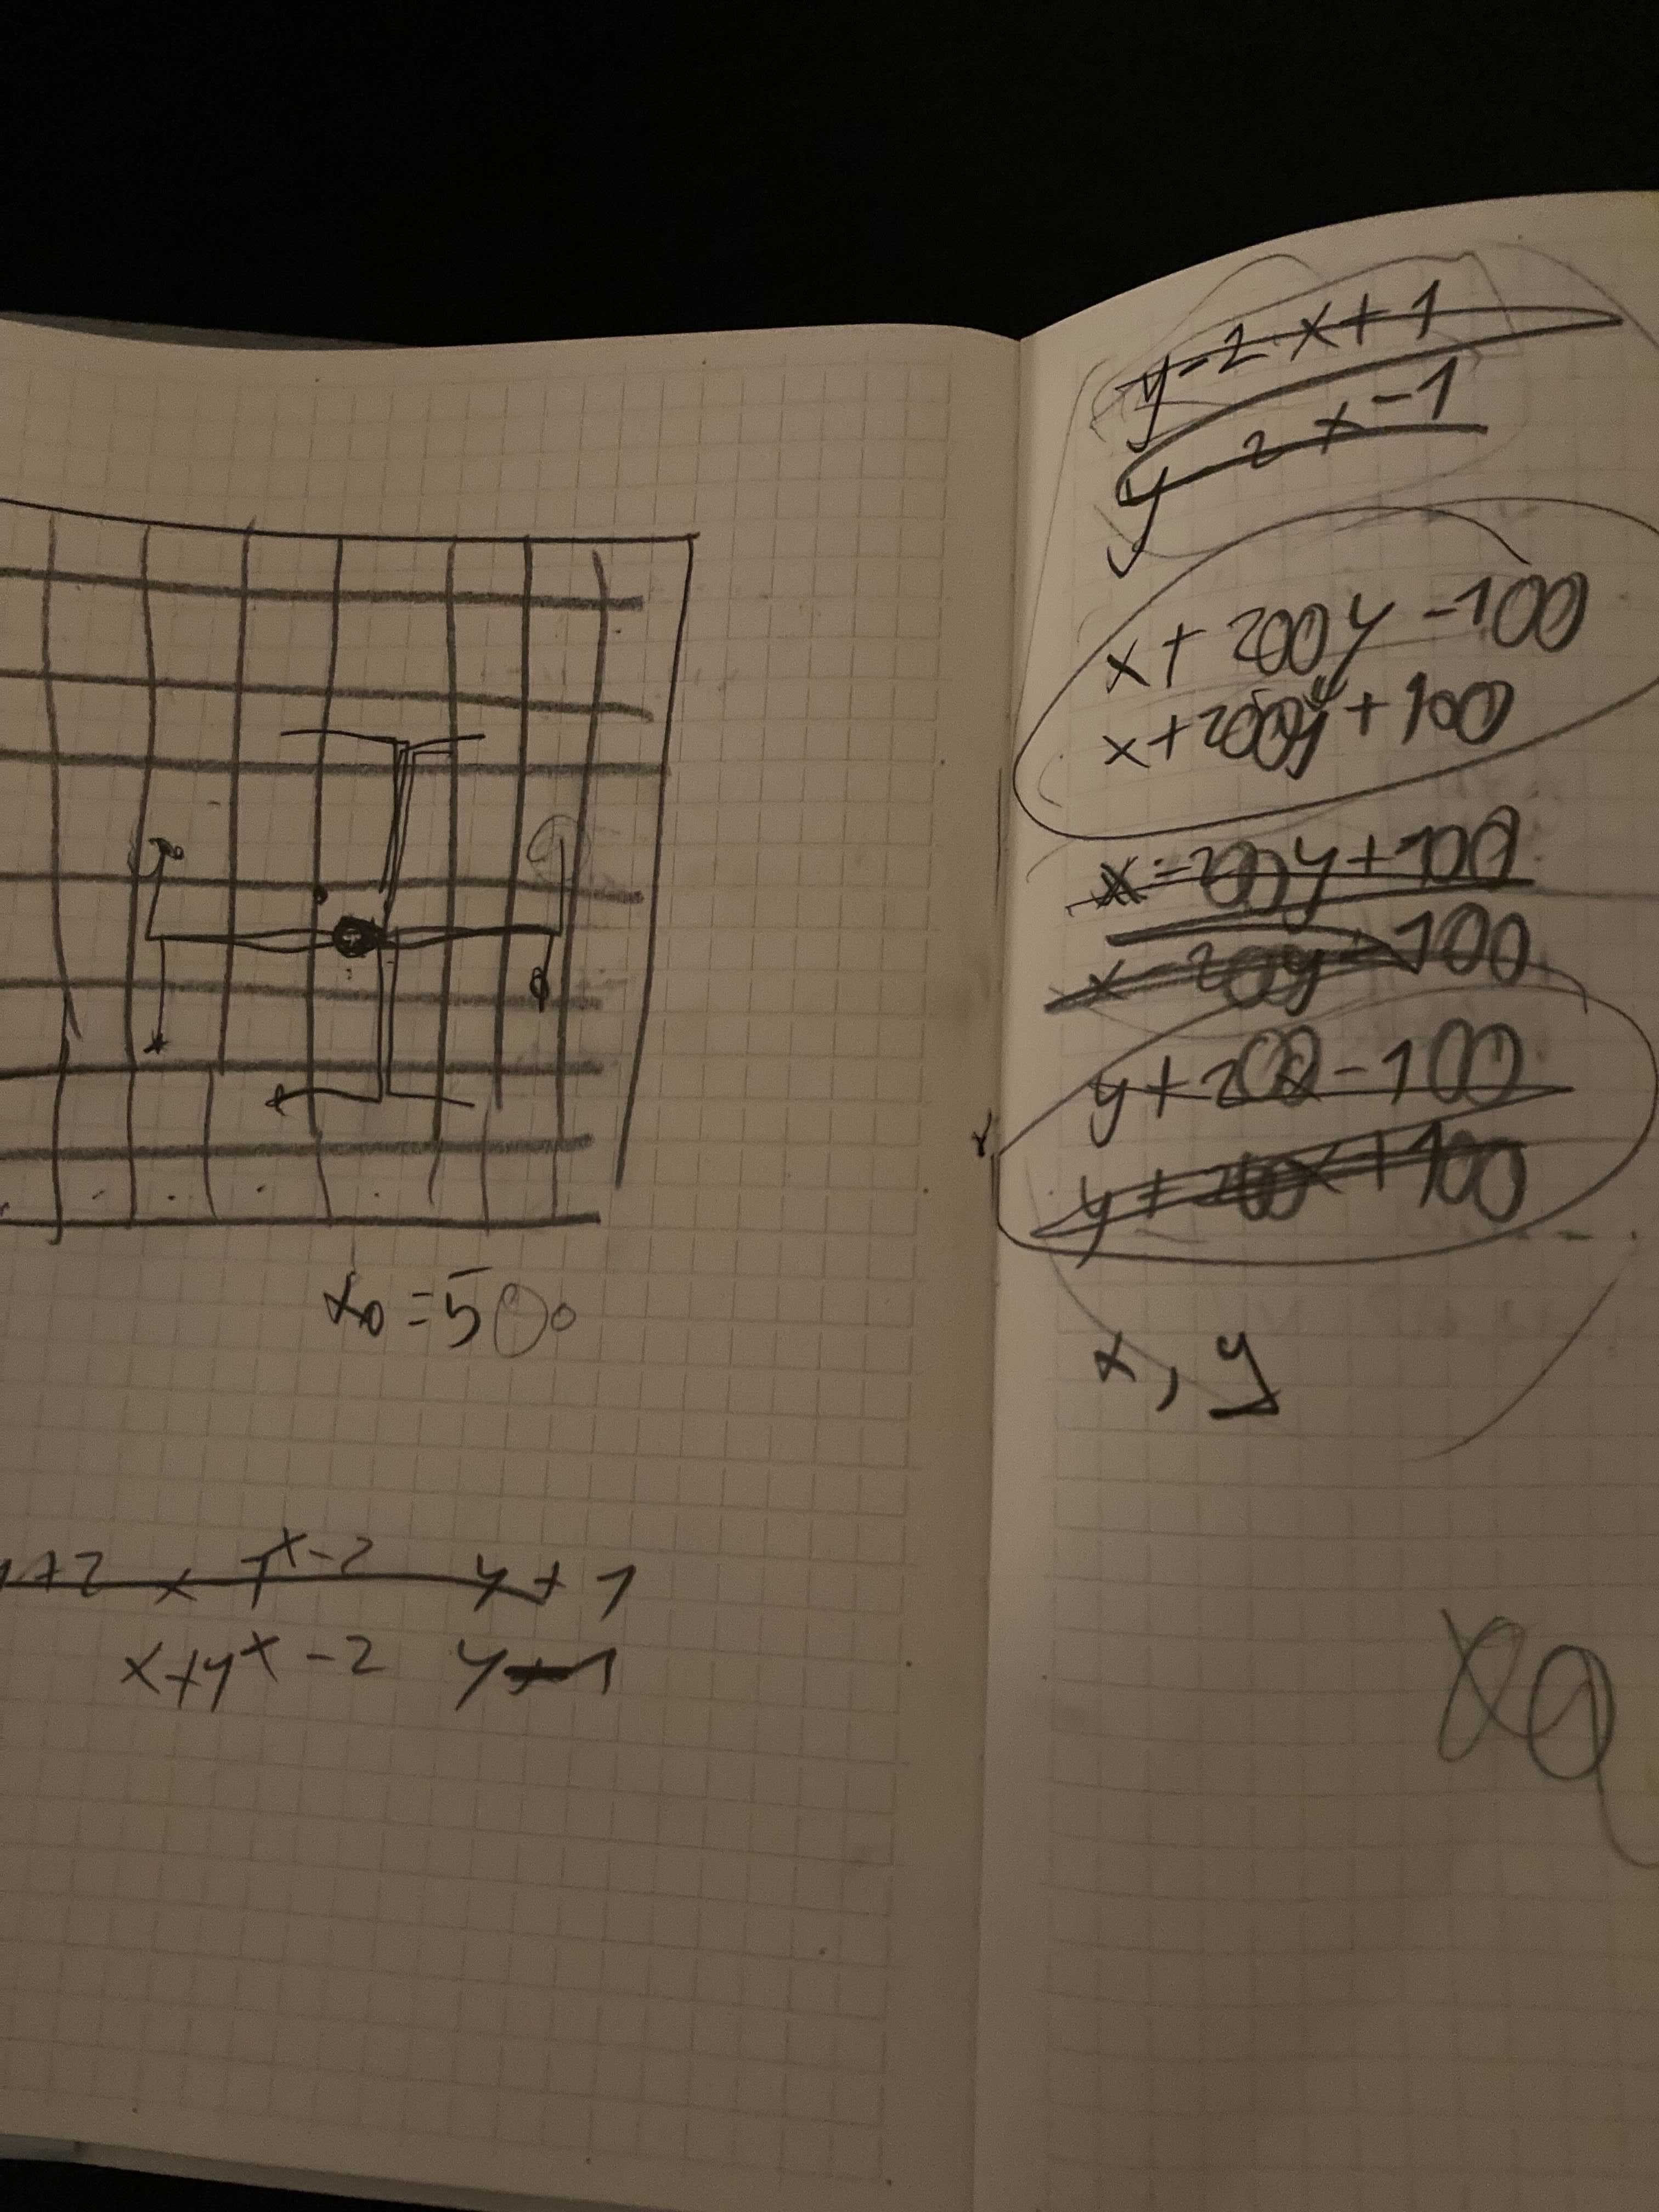 x0 = 500
x
y + 1
x + y x - 2 y
y - 2 x + 1
y 2 x - 1
x + 200 y - 100
x + 200y + 100
x = 200y + 100
x - 200y - 100
y + 200 - 100
y + 200x + 100
x, y